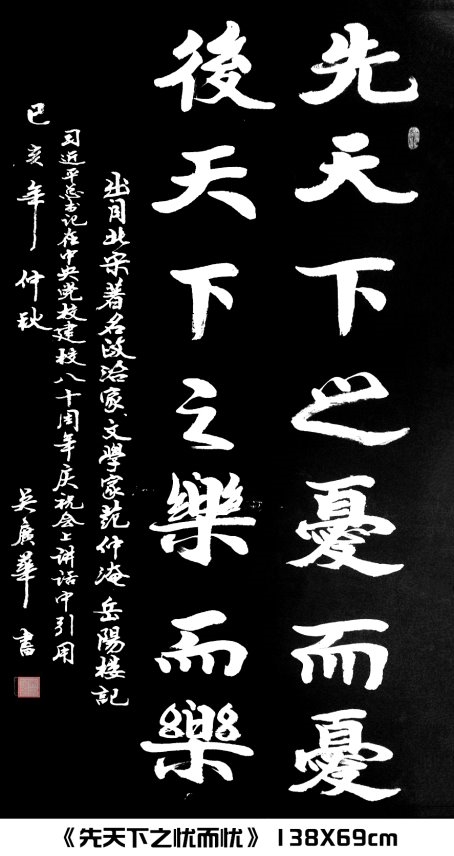 先天下之憂而憂
後天下之樂而樂
出自北宋著名政治家文學家范仲淹岳陽樓記
习近平总书记在中央党校建校八十周年庆祝会上讲话中引用
己亥年仲秋 吴廣華書
《先天下之忧而忧》 138X69cm